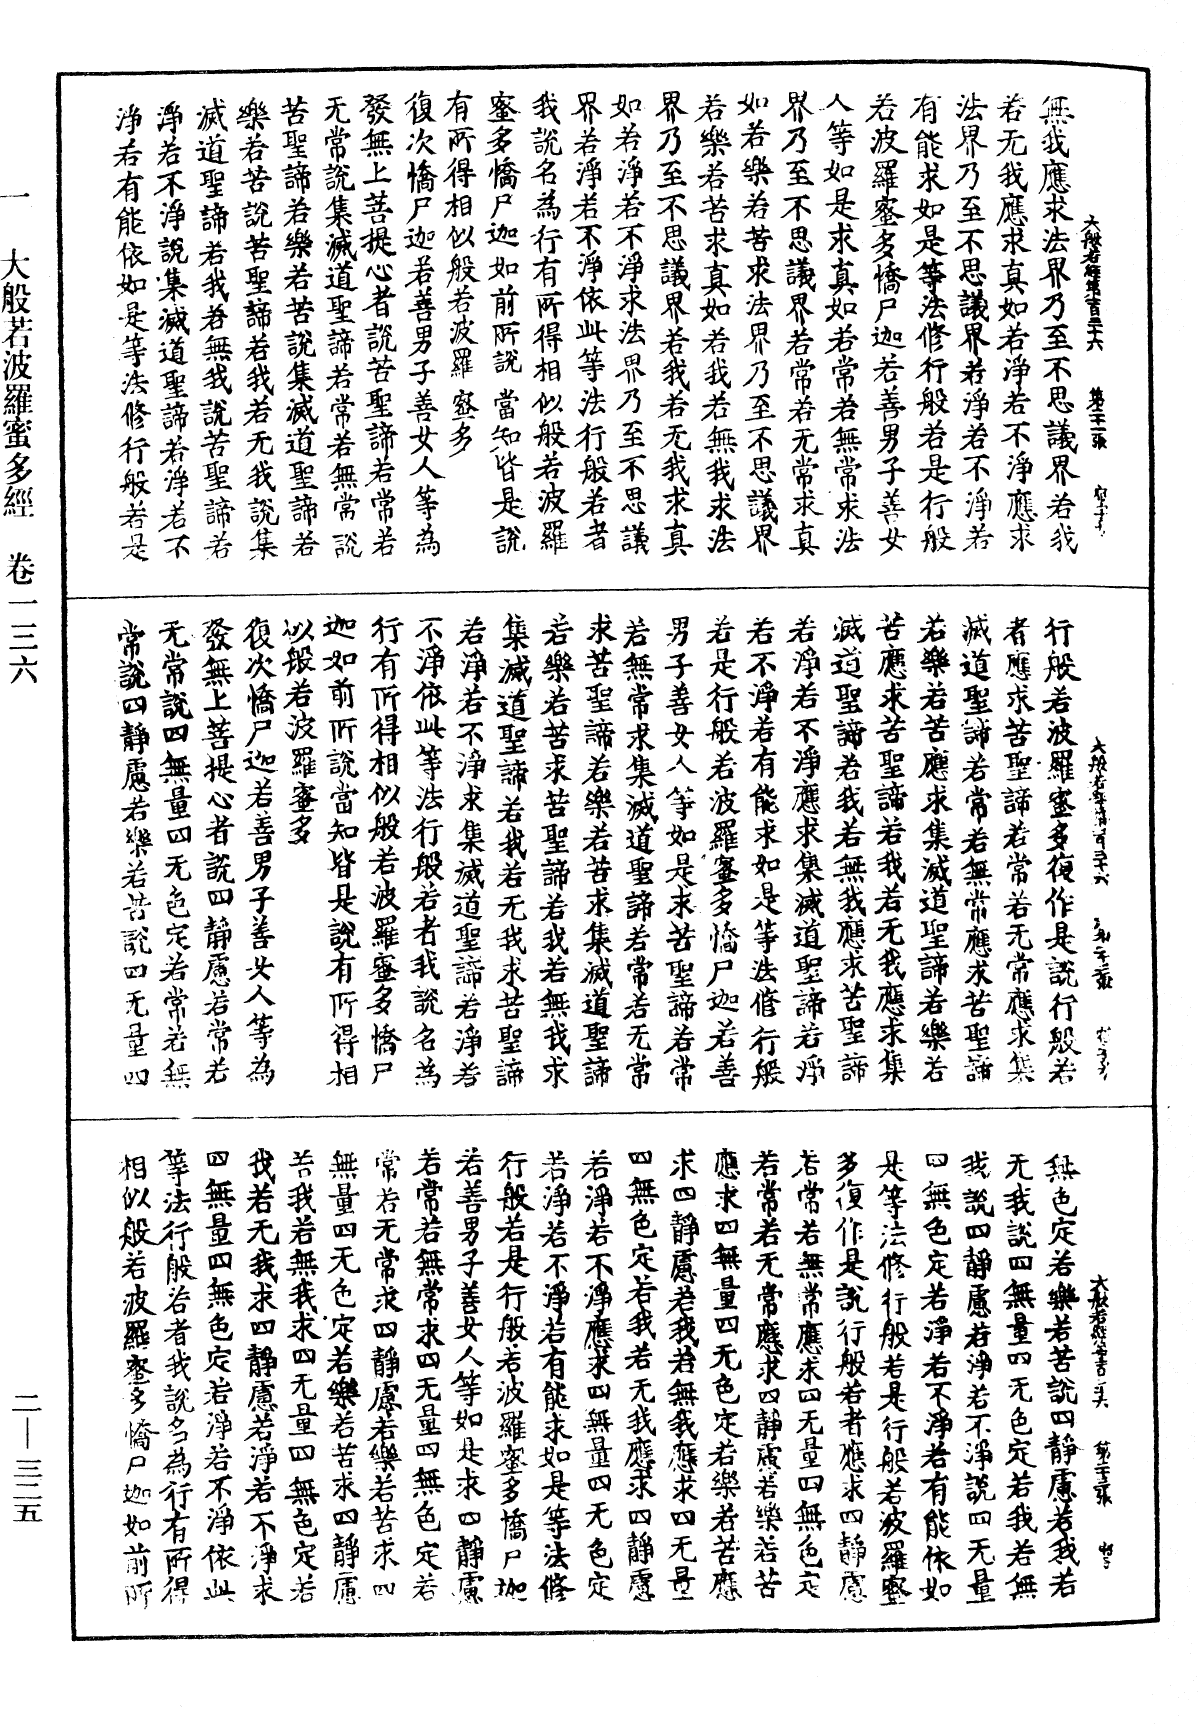 大般若經第一百三十六　第二十一張
無我應求法界乃至不思議界若我
若无我應求真如若淨若不淨應求
法界乃至不思議界若淨若不淨若
有能求如是等法修行般若是行般
若波羅蜜多憍尸迦若善男子善女
人等如是求真如若常若無常求法
界乃至不思議界若常若无常求真
如若樂若苦求法界乃至不思議界
若樂若苦求真如若我若無我求法
界乃至不思議界若我若无我求真
如若淨若不淨求法界乃至不思議
界若淨若不淨依此等法行般若者
我說名為行有所得相似般若波羅
蜜多憍尸迦如前所說當知皆是說
有所得相似般若波羅蜜多
復次憍尸迦若善男子善女人等為
發無上菩提心者說苦聖諦若常若
无常說集滅道聖諦若常若無常說
苦聖諦若樂若苦說集滅道聖諦若
樂若苦說苦聖諦若我若无我說集
滅道聖諦若我若無我說苦聖諦若
淨若不淨說集滅道聖諦若淨若不
淨若有能依如是等法修行般若是
大般若經第一百三十六　第二十二張
行般若波羅蜜多復作是說行般若
者應求苦聖諦若常若无常應求集
滅道聖諦若常若無常應求苦聖諦
若樂若苦應求集滅道聖諦若樂若
苦應求苦聖諦若我若无我應求集
滅道聖諦若我若無我應求苦聖諦
若淨若不淨應求集滅道聖諦若淨
若不淨若有能求如是等法修行般
若是行般若波羅蜜多憍尸迦若善
男子善女人等如是求苦聖諦若常
若無常求集滅道聖諦若常若无常
求苦聖諦若樂若苦求集滅道聖諦
若樂若苦求苦聖諦若我若無我求
集滅道聖諦若我若无我求苦聖諦
若淨若不淨求集滅道聖諦若淨若
不淨依此等法行般若者我說名為
行有所得相似般若波羅蜜多憍尸
迦如前所說當知皆是說有所得相
似般若波羅蜜多
復次憍尸迦若善男子善女人等為
發無上菩提心者說四靜慮若常若
无常說四無量四无色定若常若無
常說四靜慮若樂若苦說四无量四
大般若經第一百三十六　第二十三張
無色定若樂若苦說四靜慮若我若
无我說四無量四无色定若我若無
我說四靜慮若淨若不淨說四无量
四無色定若淨若不淨若有能依如
是等法修行般若是行般若波羅蜜
多復作是說行般若者應求四靜慮
若常若無常應求四无量四無色定
若常若无常應求四靜慮若樂若苦
應求四無量四无色定若樂若苦應
求四靜慮若我若無我應求四无量
四無色定若我若无我應求四靜慮
若淨若不淨應求四無量四无色定
若淨若不淨若有能求如是等法修
行般若是行般若波羅蜜多憍尸迦
若善男子善女人等如是求四靜慮
若常若無常求四无量四無色定若
常若无常求四靜慮若樂若苦求四
無量四无色定若樂若苦求四靜慮
若我若無我求四无量四無色定若
我若无我求四靜慮若淨若不淨求
四無量四無色定若淨若不淨依此
等法行般若者我說名為行有所得
相似般若波羅蜜多憍尸迦如前所
一　大般若波羅蜜多經　卷一三六
二—三二五